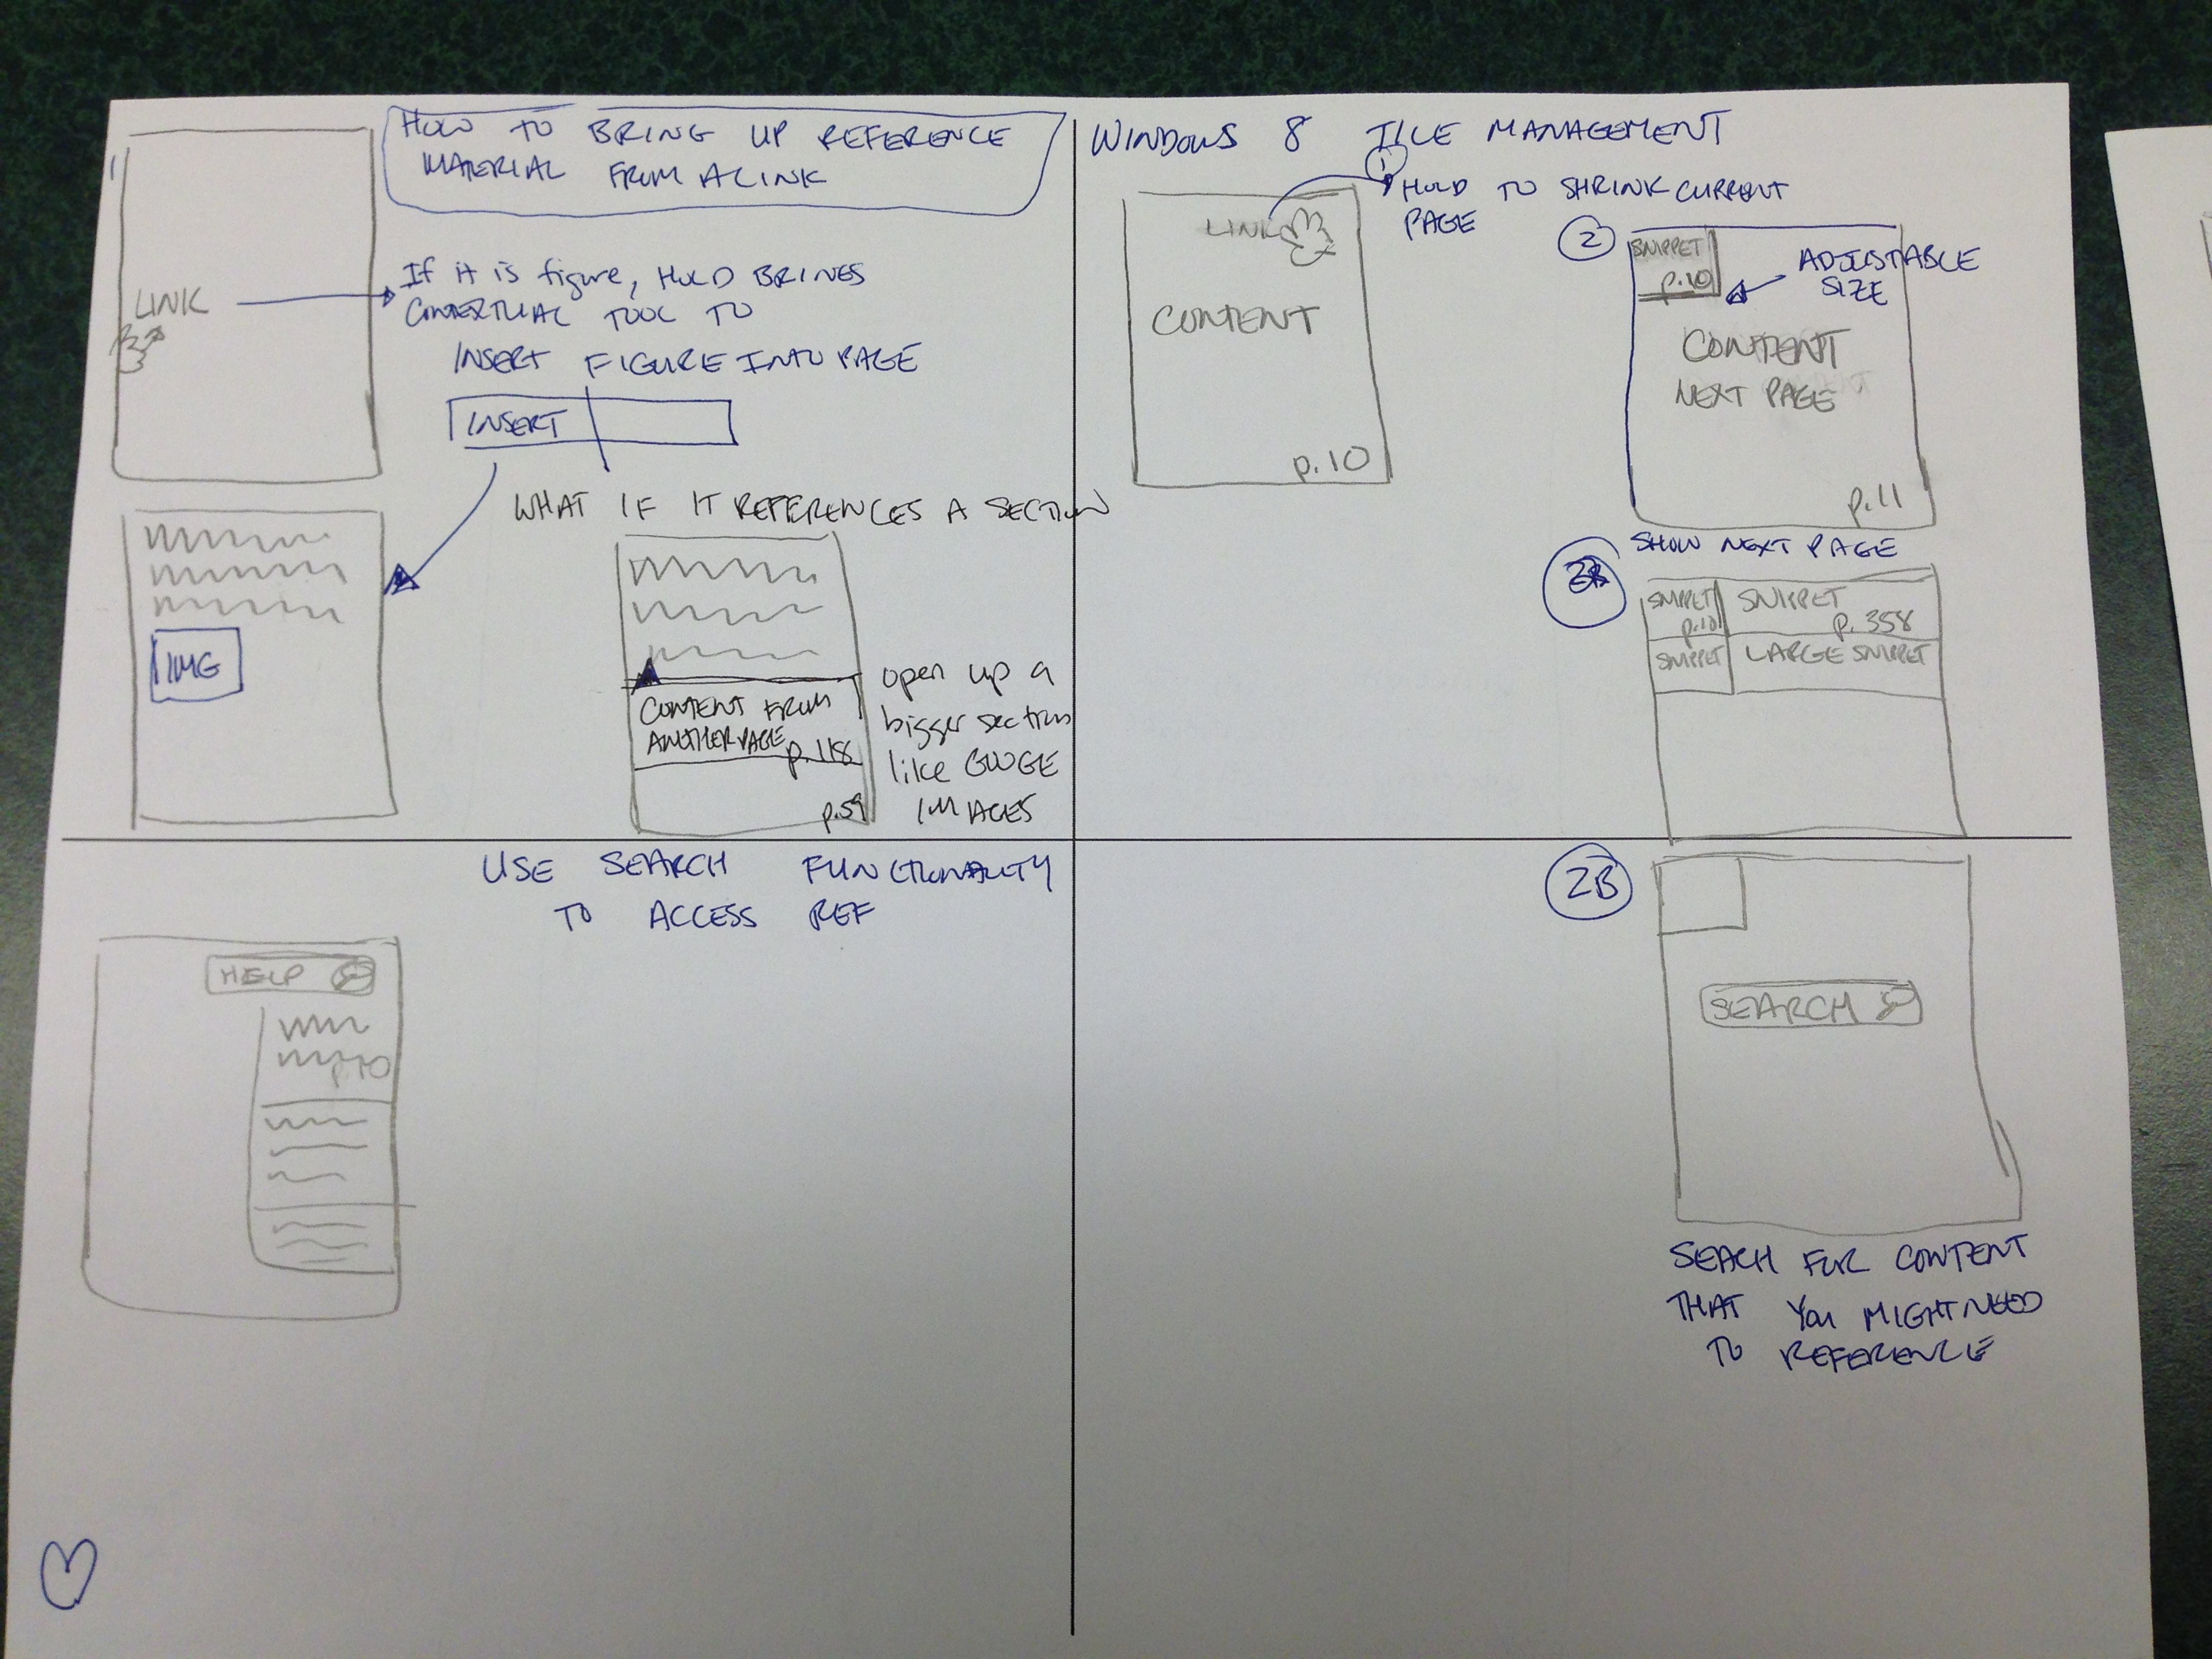 HOW TO BRING UP REFERENCE
MATERIAL FROM A LINK
LINK
If it is figure, HOLD BRINGS
CONTEXTUAL TOOL TO
INSERT FIGURE INTO PAGE
INSERT
IMG
WHAT IF IT REFERENCES A SECTION
CONTENT FROM
ANOTHER PAGE
p.188
p.59
open up a
bigger section
like GOOGLE
IMAGES
USE SEARCH FUNCTIONALITY
TO ACCESS REF
HELP
p.10
WINDOWS 8 TILE MANAGEMENT
LINK
CONTENT
p.10
1
HOLD TO SHRINK CURRENT
PAGE
2
SNIPPET
p.10
ADJUSTABLE
SIZE
CONTENT
NEXT PAGE
p.11
SHOW NEXT PAGE
SNIPPET
p.10
SNIPPET
p.358
SNIPPET
LARGE SNIPPET
2B
SEARCH
SEARCH FOR CONTENT
THAT YOU MIGHT NEED
TO REFERENCE